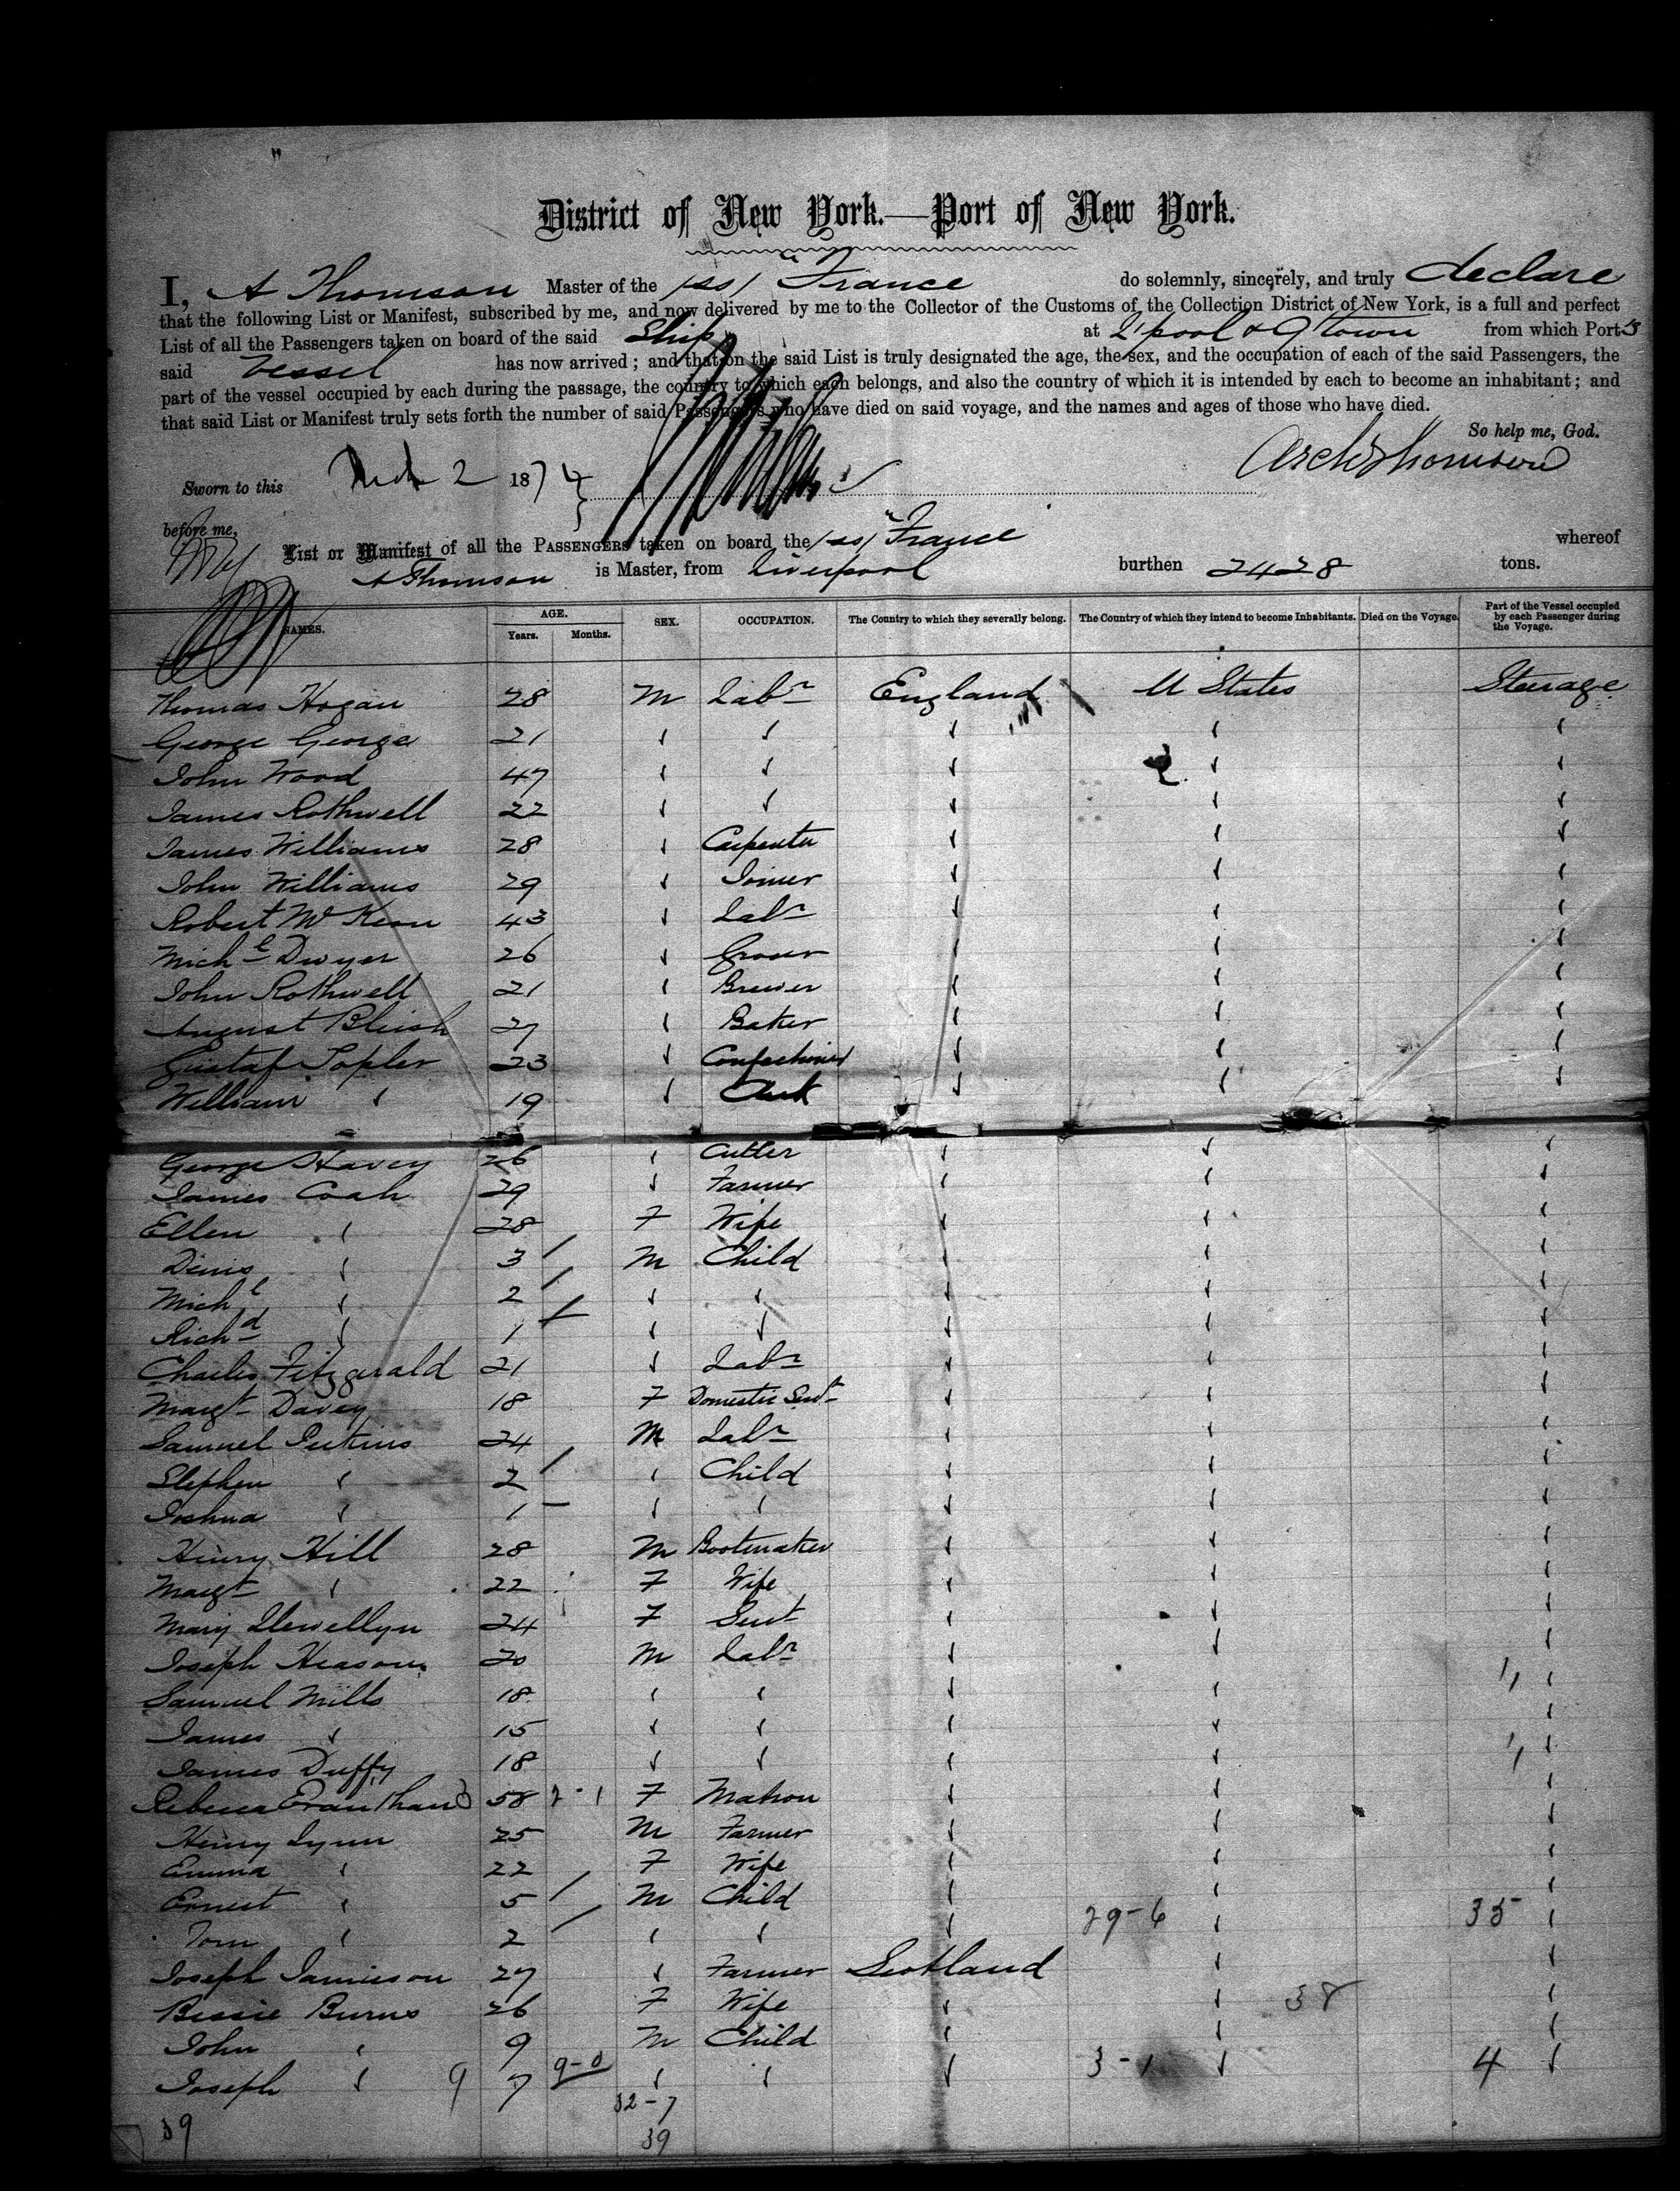 District of New York.—Port of New York.
I, A Thomson Master of the (ss) "France do solemnly, sincerely, and truly declare
that the following List or Manifest, subscribed by me, and now delivered by me to the Collector of the Customs of the Collection District of New York, is a full and perfect
List of all the Passengers taken on board of the said Ship at L'pool & Q'town from which Ports
said Vessel has now arrived; and that on the said List is truly designated the age, the sex, and the occupation of each of the said Passengers, the
part of the vessel occupied by each during the passage, the country to which each belongs, and also the country of which it is intended by each to become an inhabitant; and
that said List or Manifest truly sets forth the number of said Passengers who have died on said voyage, and the names and ages of those who have died.
So help me, God.
Arch Thomson
Sworn to this Mch 2 1874
before me,
List or Manifest of all the PASSENGERS taken on board the (ss) "France whereof
A Thomson is Master, from Liverpool burthen 2428 tons.
NAMES. AGE. Years. Months. SEX. OCCUPATION. The Country to which they severally belong. The Country of which they intend to become Inhabitants. Died on the Voyage. Part of the Vessel occupied by each Passenger during the Voyage.
Thomas Hogan 28 M Labr England U States Steerage
George George 21
John Wood 47
James Rothwell 22
James Williams 28 Carpenter
John Williams 29 Joiner
Robert McKeon 43 Labr
Michl Dwyer 26 Grocer
John Rothwell 21 Brewer
August Bleish 27 Baker
Gustaf Topler 23 Confectioner
William 19 Clerk
George Havey 26 Cutler
James Coah 29 Farmer
Ellen 28 F Wife
Dinis 3 M Child
Michl 2
Richd 1
Charles Fitzgerald 21 Labr
Margt Davey 18 F Domestic Servt
Samuel Perkins 24 M Labr
Stephen 2 Child
Joshua 1
Henry Hill 28 M Bootmaker
Margt 22 F Wife
Mary Llewellyn 24 F Servt
Joseph Heason 20 M Labr
Samuel Mills 18
James 15
James Duffy 18
Rebecca 58 2-1 F Matron
Henry Lynn 25 M Farmer
Emma 22 F Wife
Ernest 5 M Child 29-6 35
Tom 2
Joseph Jamieson 27 Farmer Scotland
Bessie Burns 26 F Wife 38
John 9 M Child
Joseph 9 7 9-0 3-1 4
32-7
39 39